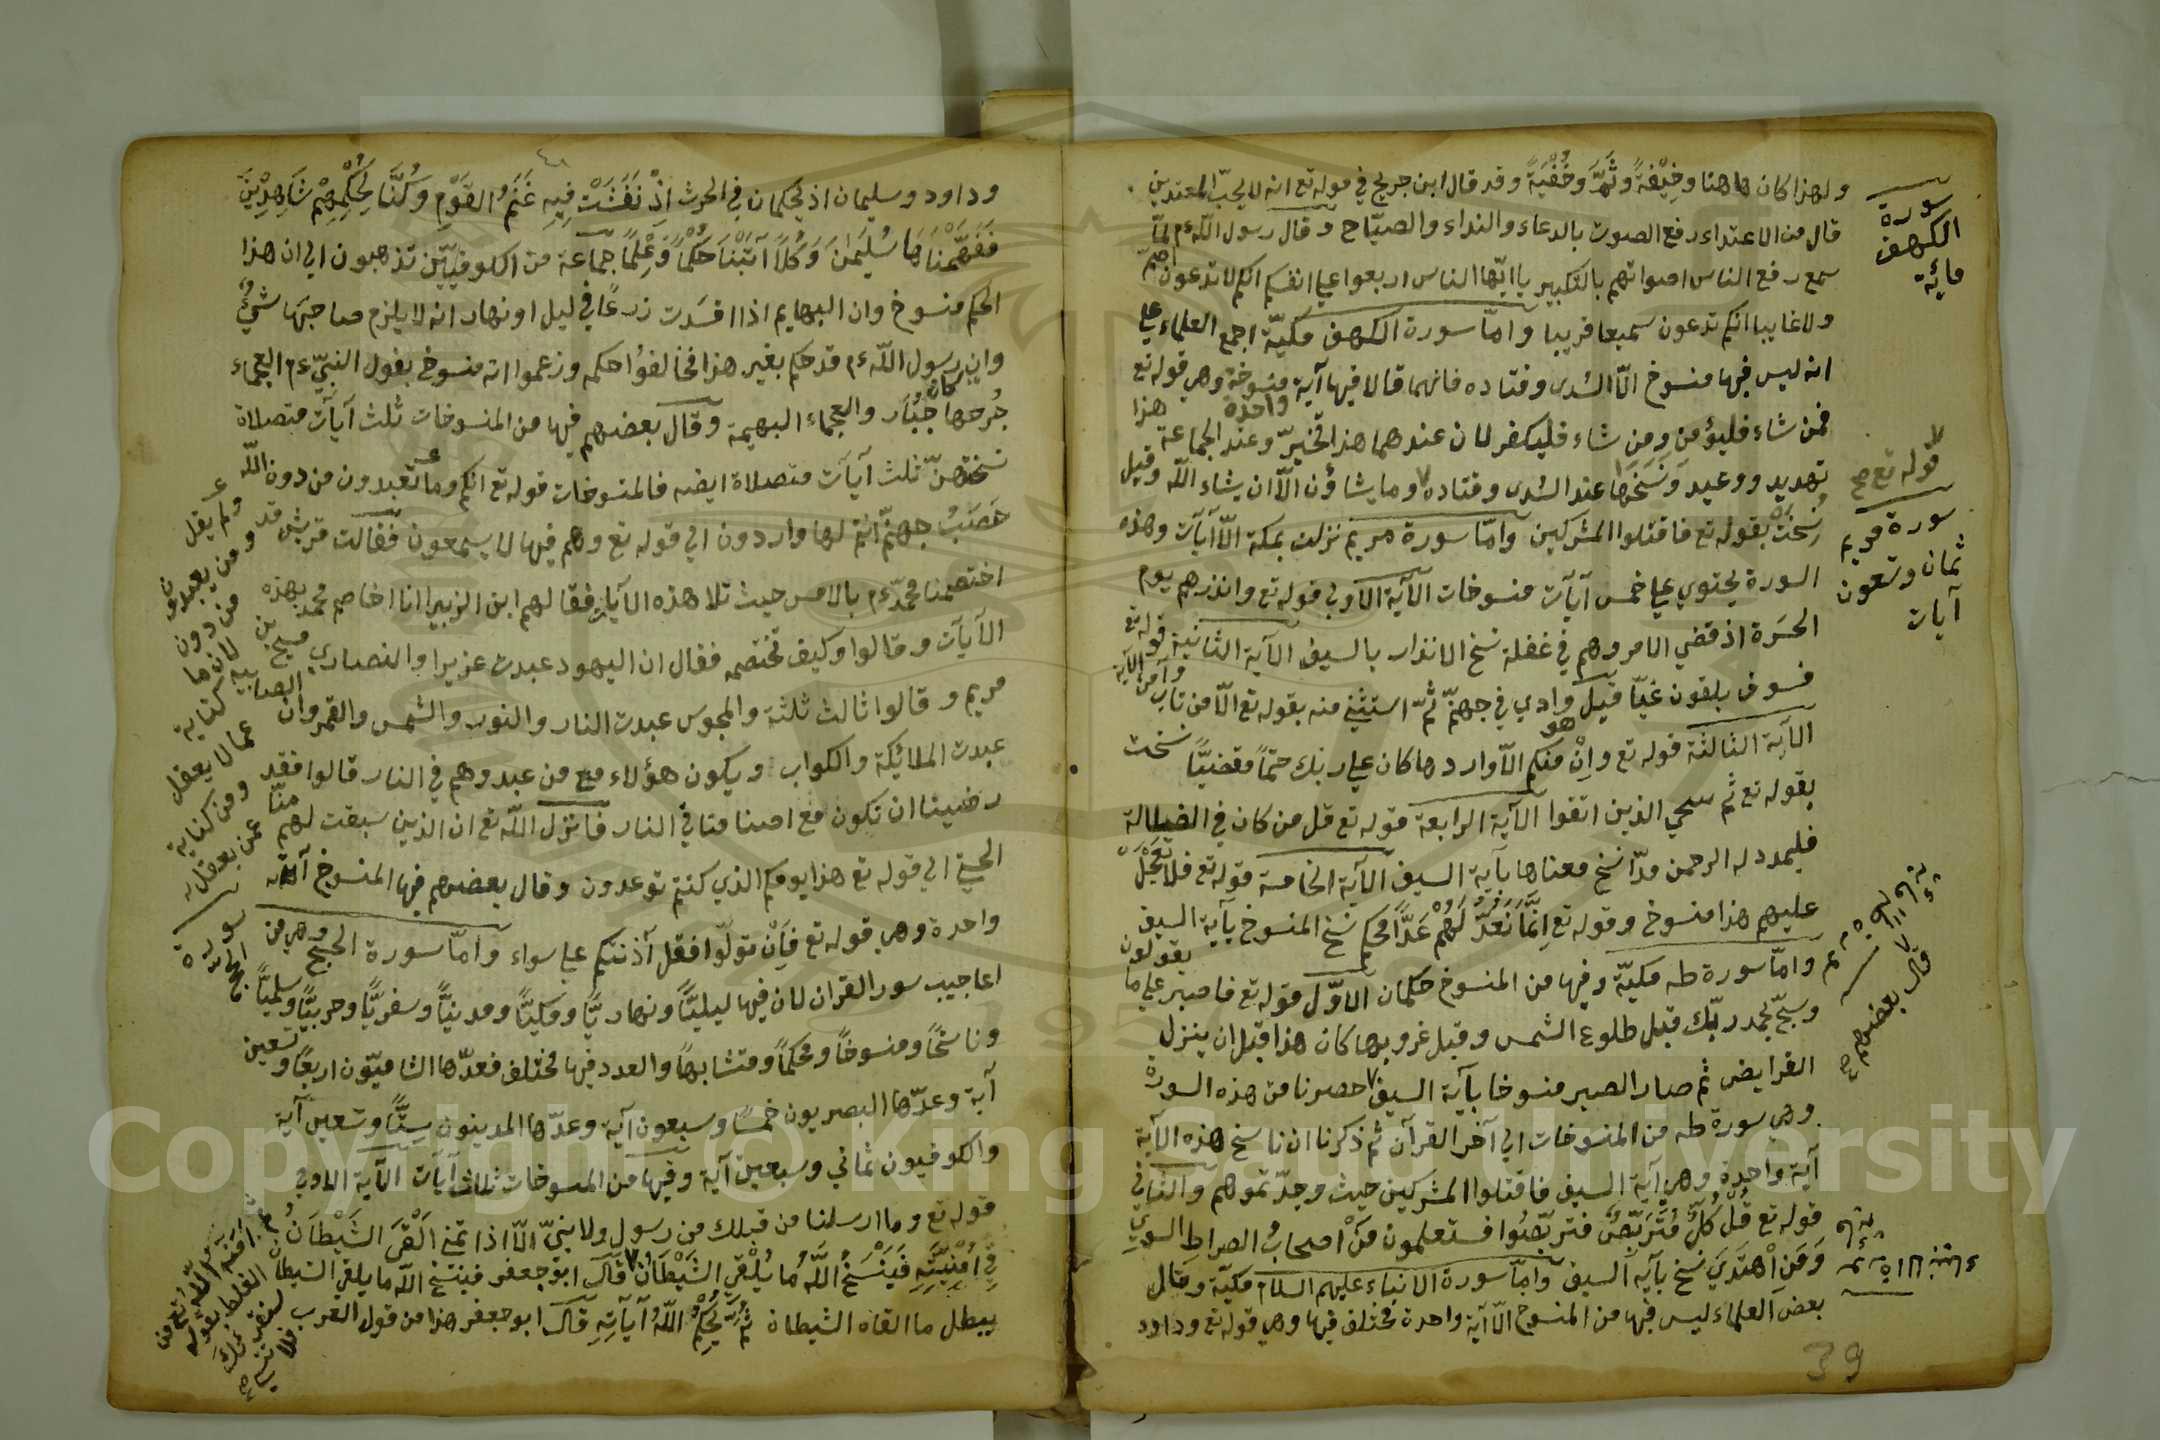 ولهذا كان هاهنا وخيفةً وثَمَّ وخُفْيَةً وقد قال ابن جريج في قوله تع انه لا يحبّ المعتدين
قال من الاعتداء رفع الصوت بالدعاء والنداء والصيّاح وقال رسول الله ءم لمّا
سمع رفع الناس اصواتهم بالتكبير يا ايّها الناس اربعوا علي انفسكم انكم لا تدعون اصم
ولا غايبا انكم تدعون سميعا قريبا وامّا سورة الكهف مكيّة اجمع العلماء علي
انه ليس فيها منسوخ الّا السُدى وقتاده فانهما قالا فيها آية واحدة منسوخة وهي قوله تع
فمن شاء فليؤمن ومن شاء فليكفر لان عندهما هذا تخيرّ وعند الجماعة هذا
تهديد ووعيد ونَسَخَها عند السُدى وقتاده وما يشاؤن الّا ان يشاء الله وقيل
نُسِخَتْ بقوله تع فاقتلوا المشركين وامّا سورة مريم نزلت بمكة الّا آيآت وهذه
السورة يحتوي علي خمس آيآت منسوخات الآية الاولي قوله تع وانذرهم يوم
الحسَرة اذ قضي الامر وهم في غفلة نسخ الانذار بالسيف الآية الثانية قوله تع
فسوف يلقون غيّا قيل هو وادي في جهنّم ثمّ استثني منه بقوله تع الّا من تاب وآمن الآية
الآية الثالثة قوله تع وانْ منكم الّا واردها كان علي ربك حتماً مقضيّاً نسخت
بقوله تع ثم ننجي الذين اتقوا الآية الرابعة قوله تع قل من كان في الضلالة
فليمدد له الرحمن مدّا نسخ معناها بآية السيف الآية الخامسة قوله تع فلا تَعْجَلْ
عليهم هذا منسوخ وقوله تع اِنَّمَا نَعُدُّ لَهُمْ عَدًّا محكم نسخ المنسوخ بآية السيف
وامّا سورة طه مكيّة وفيها من المنسوخ حكمان الاوّل قوله تع فاصبر علي ما يقولون
وسبّح بحمد ربّك قبل طلوع الشمس وقبل غروبها كان هذا قبل ان ينزل
الفرايض ثم صار الصبر منسوخا بآية السيف حصرنا من هذه السورة
وهي سورة طه من المنسوخات الي آخر القرآن ثم ذكرنا ان ناسخ هذه الآية
آية واحدة وهي آية السيف فاقتلوا المشركين حيث وجدّتموهم والثاني
قوله تع قُلْ كُلٌّ مُتَرَبِّصٌ فتربّصُوا فستعلمون مَنْ اصحابُ الصراطِ السويّ
وَمَنِ اهْتَدَي نسخ بآية السيف وامّا سورة الانبياء عليهم السلام مكيّة وقال
بعض العلماء ليس فيها من المنسوخ الّا آية واحدة مختلف فيها وهي قوله تع وداود
سورة
الكهف
مائية
قوله تع صح
سورة مريم
ثمان وتسعون
آيات
قال بعضهم
39
وداود وسليمان اذ يحكمان في الحرث اِذْ نَفَشَتْ فِيهِ غَنَمُ القَوْمِ وَكُنَّا لِحُكْمِهِمْ شَاهِدِيْنَ
فَفَهَّمْنَاهَا سُلَيمَنَ وَكُلاً آتَيْنَا حُكْمًا وَعِلْمًا جماعة من الكوفييّن تذهبون الي ان هذا
الحكم منسوخ وان البهايم اذا افسَدت زرعًا في ليل او نهار انه لا يلزم صاحبَها شيْءٌ
وان رسول الله ءم قد حكم بغير هذا فخالفوُا حكمه وزعموا انه منسوخ بقول النبيّ ءم العجماء
جُرحها كان جُبُار والعجماء البهيمة وقال بعضهم فيها من المنسوخات ثلث آيآت متصلاة
نسختهنّ ثلث آيآت متصلاة ايضه فالمنسوخات قوله تع انكم وما تعبدون من دون الله
حَصَبُ جهنّم انتم لها واردون الي قوله تع وهم فيها لا يسمعون فقالت قريش قد
اختصمنا محمّد ءم بالامس حيث تلا هذه الآيات فقال لهم ابن الزبيرا انا اخاصم محمد بهذه
الآيآت وقالوا وكيف تختصمه فقال ان اليهود عبدت عزيرا والنصاري مسيح بن
مريم وقالوا ثالث ثلثة والمجوس عبدت النار والنور والشمس والقمر وان الصابيه
عبدت الملائيكة والكواب ويكون هؤلاء مع من عبدوهم في النار قالوا فقد
رضينا ان نكون مع اصنامنا في النار فانزل الله تع ان الذين سبقت لهم منّا
الحسني الي قوله تع هذا يومكم الذي كنتم توعدون وقال بعضهم فيها المنسوخ آية
واحدة وهي قوله تع فاِنْ تولّوا فقل آذنتكم علي سواء وامّا سورة الحج وهي من
اعاجيب سور القران لان فيها ليليّاً ونهاريًّا ومكيّاً ومدنيًّا وسفريًّا وحربيًّا وسلميًّا
وناسخًا ومنسوخاً ومحكماً ومتشابهاً والعدد فيها مختلف فعدّها الشاميّون اربعًا وتسعين
آية وعدّها البصريون خمسًا وسبعون آية وعدّها المدينون سِتًّا وتسعين آية
والكوفيون ثماني وسبعين آية وفيها من المنسوخات ثلاث آيآت الآية الاولي
قوله تع وما ارسلنا من قبلك من رسول ولا نبيّ الّا اذا تمني اَلْقَي الشَيْطَانُ
فِي اُمْنِيَّتِهِ فَيَنْسَخُ اللَّهُ ما يُلْقِي الشَيْطَانُ قال ابو جعفر فينسخ الله ما يلقي الشيطان
يبطل ما القاه الشيطان ثُمَّ يُحْكِمُ اللهُ آيَاتِهِ قال ابو جعفر هذا من قول العرب
ولم يقل
ومن يعبدون
من دون
لان ما
كناية
عما لا يعقل
ومن كناية
عمن يعقل
سورة
الحج
Copyright © King Saud University
1957